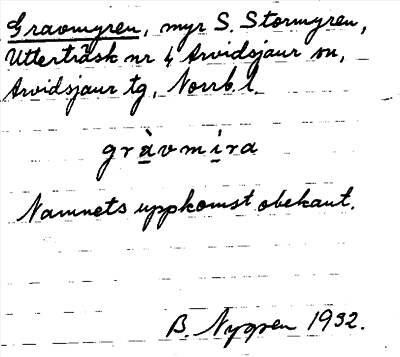 Gravmyren, myr S. Stormyren,
Utterträsk nr 4 Arvidsjaur sn,
Arvidsjaur tg, Norrb. l.
gràvmira
Namnets uppkomst obekant.
B. Nygren 1932.